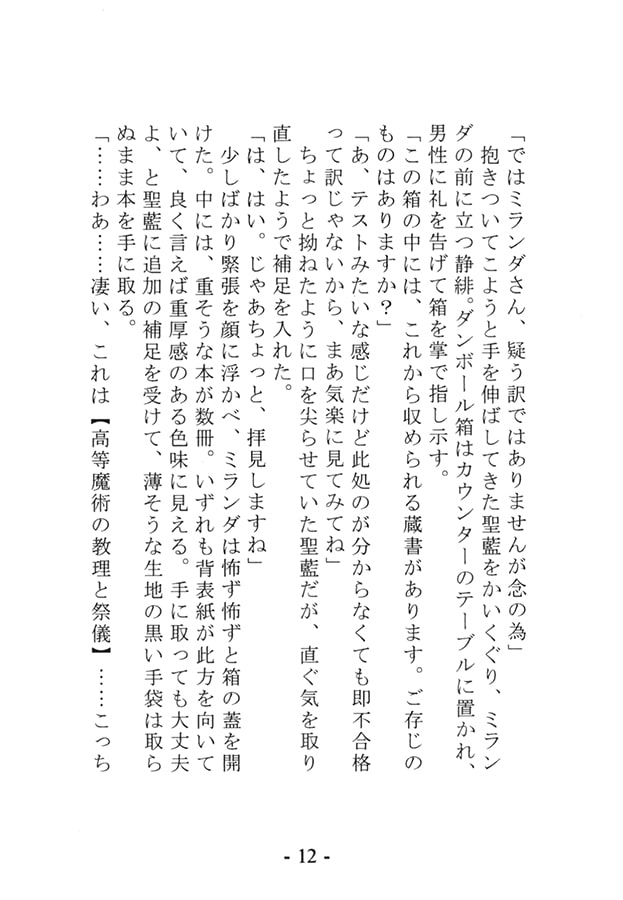 「ではミランダさん、疑う訳ではありませんが念の為」
　抱きついてこようと手を伸ばしてきた聖藍をかいくぐり、ミラン
ダの前に立つ静緋。ダンボール箱はカウンターのテーブルに置かれ、
男性に礼を告げて箱を掌で指し示す。
「この箱の中には、これから収められる蔵書があります。ご存じの
ものはありますか？」
「あ、テストみたいな感じだけど此処のが分からなくても即不合格
って訳じゃないから、まあ気楽に見てみてね」
　ちょっと拗ねたように口を尖らせていた聖藍だが、直ぐ気を取り
直したようで補足を入れた。
「は、はい。じゃあちょっと、拝見しますね」
　少しばかり緊張を顔に浮かべ、ミランダは怖ず怖ずと箱の蓋を開
けた。中には、重そうな本が数冊。いずれも背表紙が此方を向いて
いて、良く言えば重厚感のある色味に見える。手に取っても大丈夫
よ、と聖藍に追加の補足を受けて、薄そうな生地の黒い手袋は取ら
ぬまま本を手に取る。
「……わあ……凄い、これは【高等魔術の教理と祭儀】……こっち
- 12 -